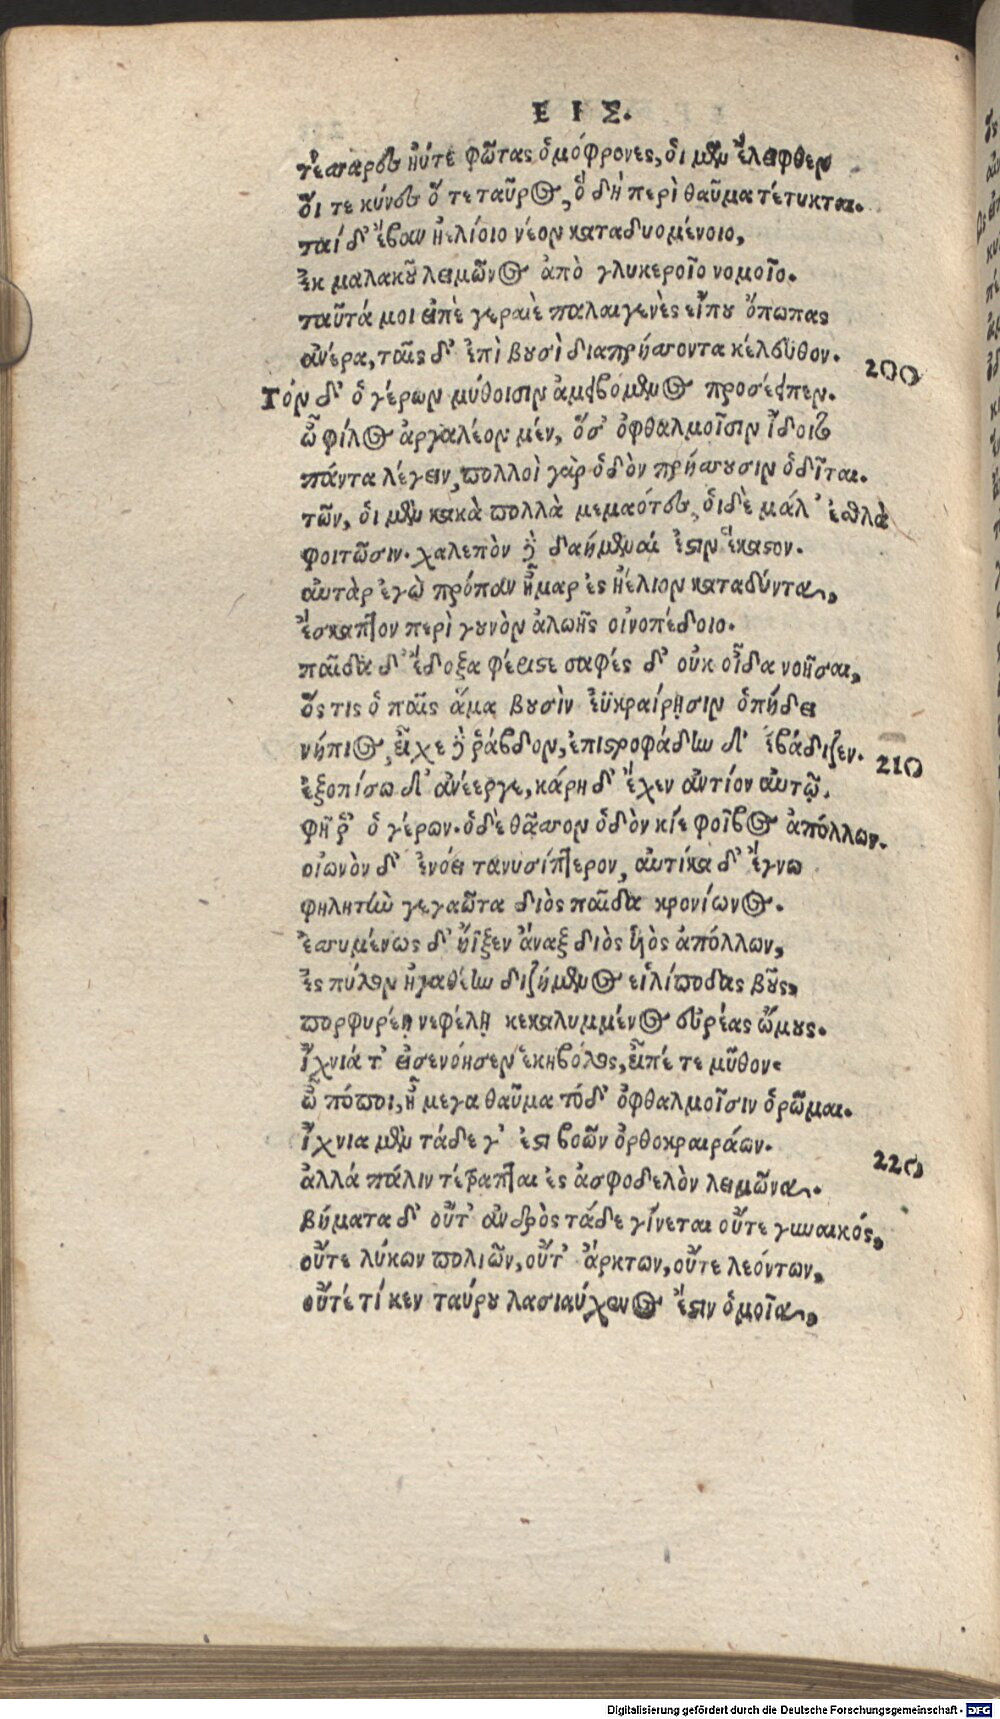 ΕΙΣ.
τέσσαρες ἠύτε φῶτας ὁμόφρονες, ὁι μὲν ἔλειφθεν
ὅι τε κύνες ὅ τε ταῦρος, ὃ δὴ περὶ θαῦμα τέτυκται.
ταί δ' ἔβαν ἠελίοιο νέον καταδυομένοιο,
ἐκ μαλακοῦ λειμῶνος ἀπὸ γλυκεροῖο νομοῖο.
ταῦτά μοι εἰπὲ γεραιὲ παλαιγενὲς εἴπου ὄπωπας
ἀνέρα, ταῖς δ' ἐπὶ βουσὶ διαπρήσσοντα κέλευθον. 200
Τόν δ' ὁ γέρων μύθοισιν ἀμειβομενος προσέειπεν.
ὦ φίλος ἀργαλέον μέν, ὅσ' ὀφθαλμοῖσιν ἴδοιτο
πάντα λέγειν, πολλοὶ γὰρ ὁδὸν πρήσσουσιν ὁδῖται.
τῶν, ὁι μὲν κακὰ πολλὰ μεμαότες, ὁιδὲ μάλ' ἐσθλὰ
φοιτῶσιν. χαλεπὸν δὲ δαήμεναί ἐστιν ἕκαστον.
αὐτὰρ ἐγὼ πρόπαν ἦμαρ ἐς ἠέλιον καταδύντα,
ἔσκαπτον περὶ γουνὸν ἀλωῆς οἰνοπέδοιο.
παῖδα δ' ἔδοξα φέριστε σαφές δ' οὐκ οἶδα νοῆσαι,
ὅς τις ὁ παῖς ἅμα βουσὶν ἐϋκραίρῃσιν ὀπήδει
νήπιος, εἶχε δὲ ῥάβδον, ἐπιστροφάδην δ' ἐβάδιζεν. 210
ἐξοπίσω δ' ἀνέεργε, κάρη δ' ἔχεν ἀντίον αὐτῷ.
φῆ ῥ' ὁ γέρων. ὁδὲ θᾶσσον ὁδὸν κίε φοῖβος ἀπόλλων.
οἰωνὸν δ' ἐνόει τανυσίπτερον, αὐτίκα δ' ἔγνω
φηλητὴν γεγαῶτα διὸς παῖδα κρονίωνος.
ἐσσυμένως δ' ἤϊξεν ἄναξ διὸς ὑὸς ἀπόλλων,
ἐς πύλον ἠγαθέην διζήμενος εἰλίποδας βοῦς,
πορφυρέῃ νεφέλῃ κεκαλυμμένος εὐρέας ὤμους.
ἴχνιά τ' εἰσενόησεν ἑκηβόλος, εἶπέ τε μῦθον.
ὦ πόποι, ἦ μεγα θαῦμα τόδ' ὀφθαλμοῖσιν ὁρῶμαι.
ἴχνια μὲν τάδε γ' ἐστὶ βοῶν ὀρθοκραιράων. 220
ἀλλά πάλιν τέτραπται ἐς ἀσφοδελὸν λειμῶνα.
βήματα δ' οὔτ' ἀνδρὸς τάδε γίνεται οὔτε γυναικός,
οὔτε λύκων πολιῶν, οὔτ' ἄρκτων, οὔτε λεόντων,
οὔτέ τί κεν ταύρου λασιαύχενος ἔστιν ὁμοῖα,
Digitalisierung gefördert durch die Deutsche Forschungsgemeinschaft - DFG